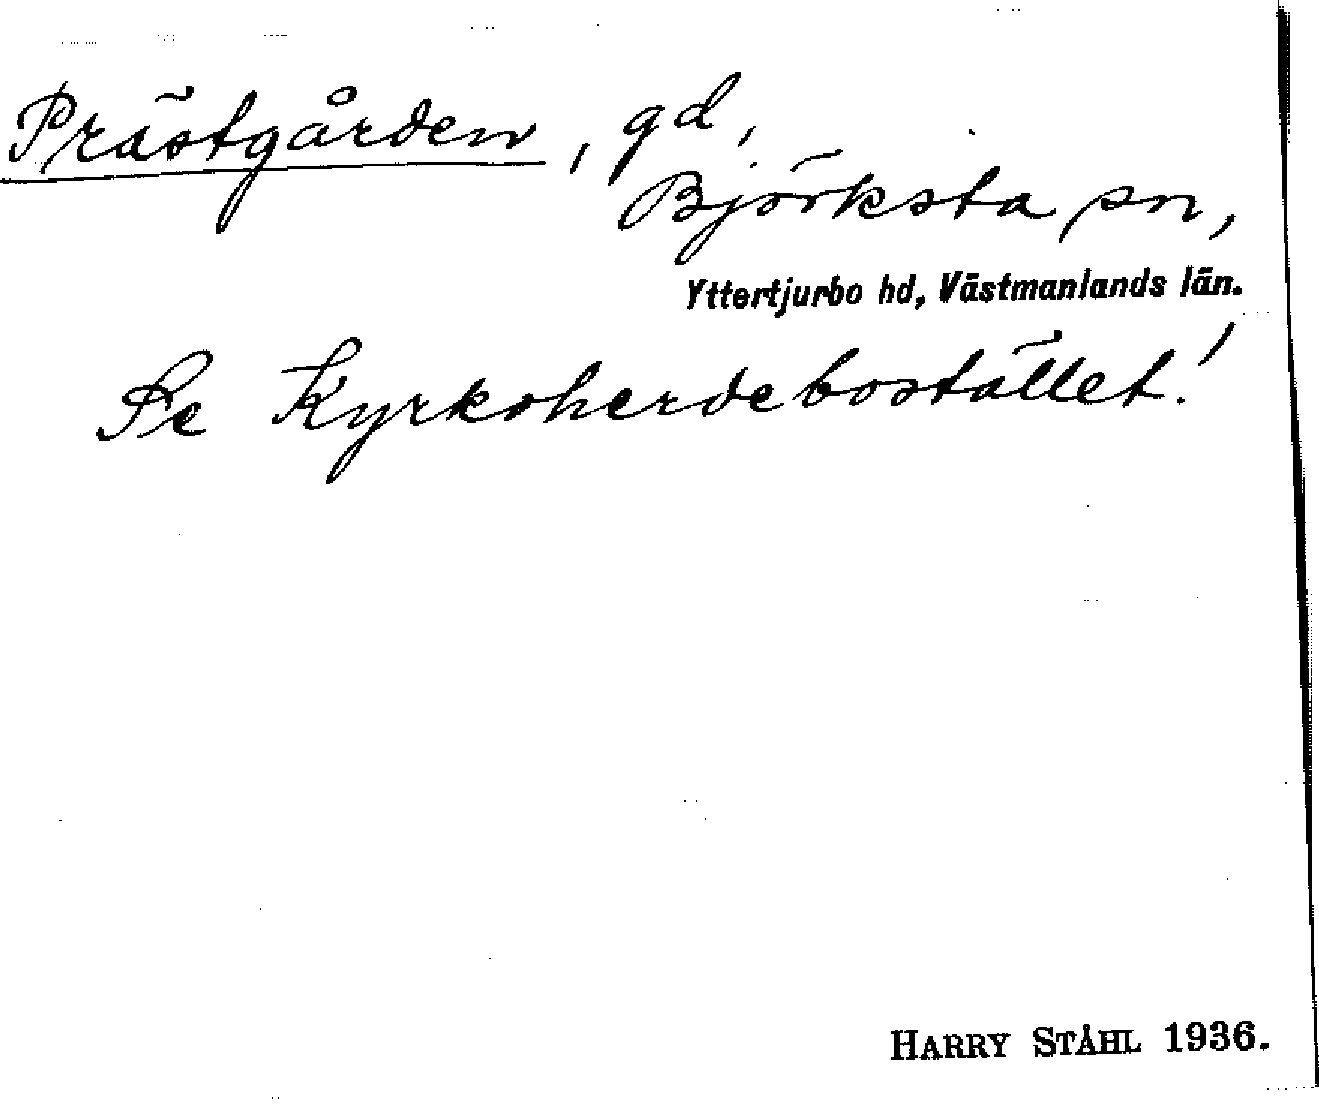 Prästgården, gd,
Björksta sn,
Yttertjurbo hd, Västmanlands län.
Se Kyrkoherdebostället!
HARRY STÅHL 1936.